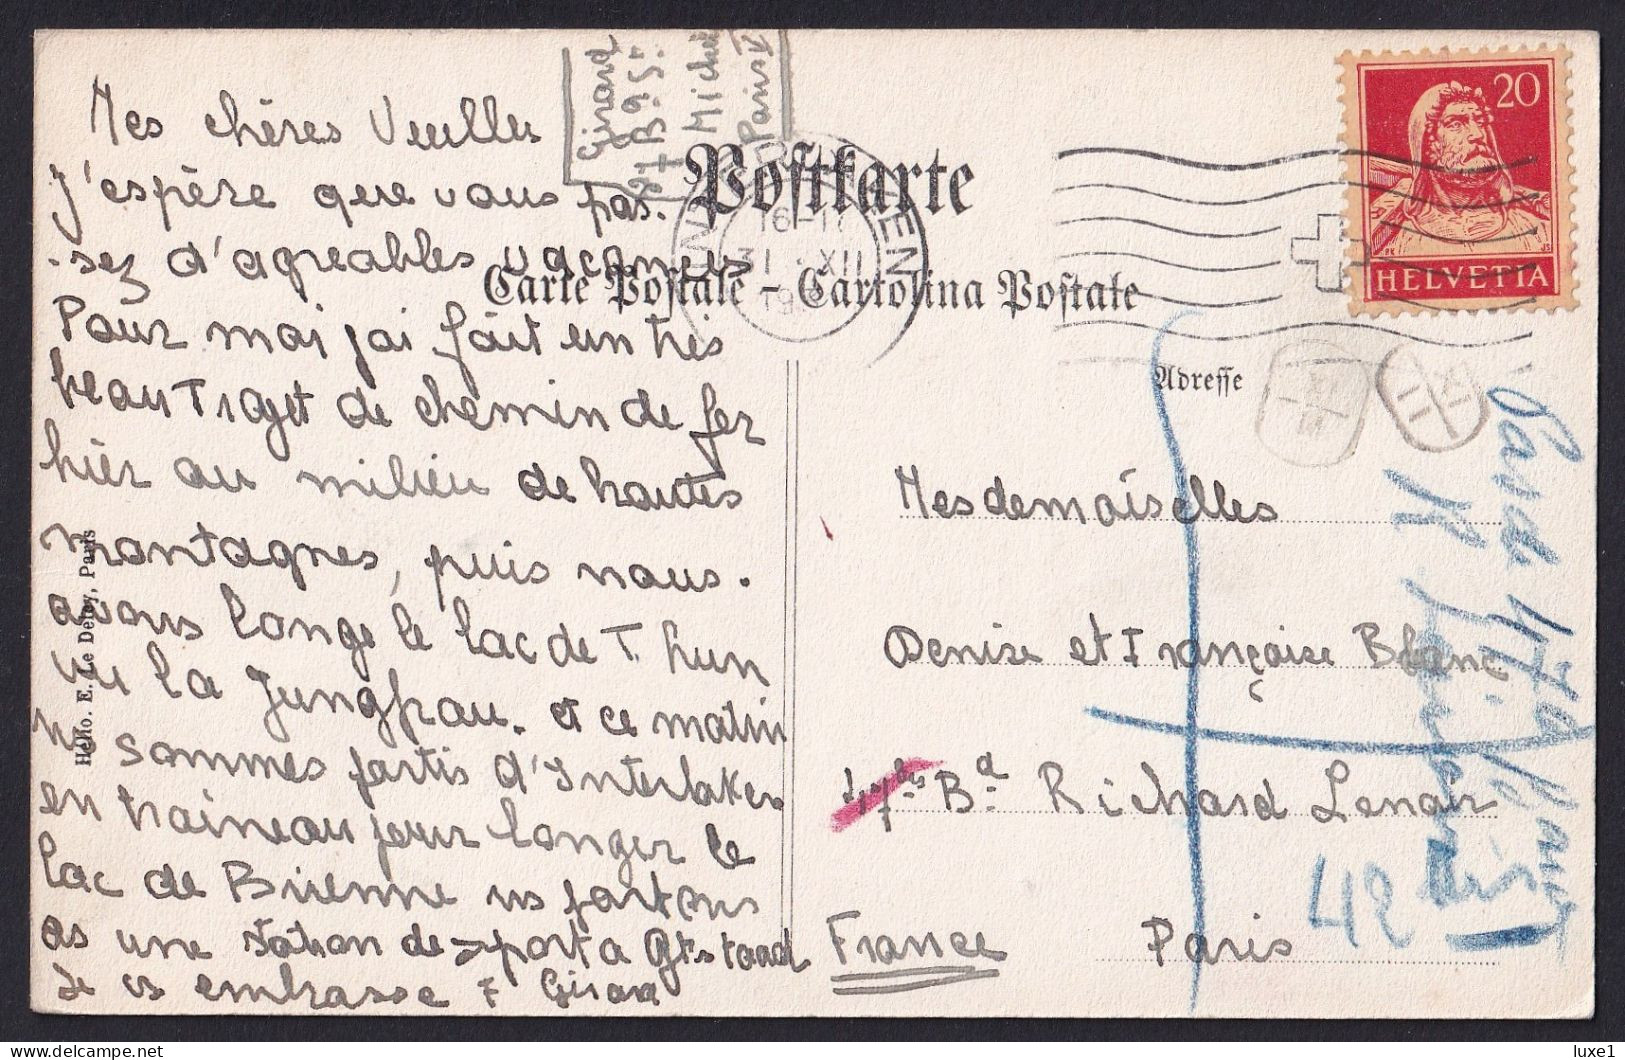 Mes chères Vieilles
j'espère que vous pas-
sez d'agreables vacances
Pour moi jai fait un très
beau Trajet de chemin de fer
hier au milieu de hautes
montagnes, puis nous
avons longe le lac de Thun
vu la Jungfrau. et ce matin
ns sommes partis d'Interlaken
en traineau pour longer le
lac de Brienne ns partons
ds une station de sport a Gtstaad
Je vs embrasse F Girard
Hélio. E. Le Deley, Paris
Girard
27 B
Michel
Paris V
Postkarte
Carte Postale – Cartolina Postale
INTERLAKEN
16-17
31. XII
19
20
HELVETIA
Adresse
Mesdemoiselles
Denise et Françoise Blanc
47bis Bd Richard Lenoir
France Paris
42
luxe1